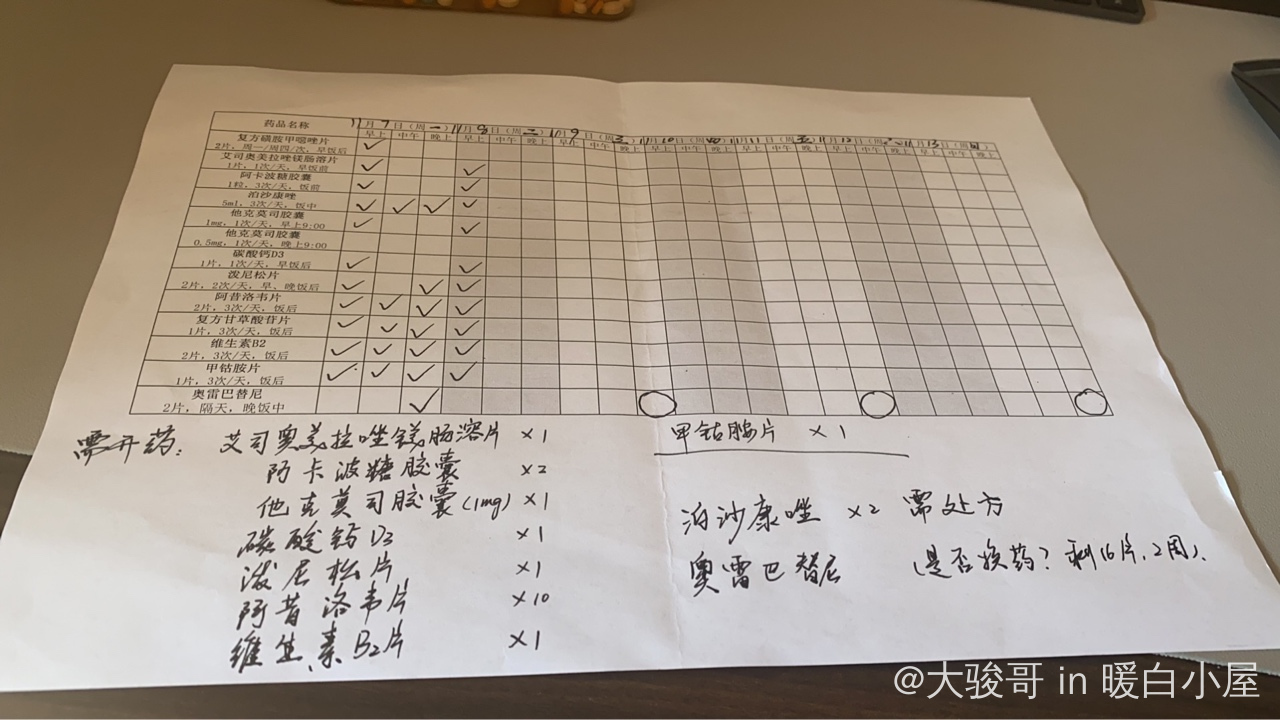 药品名称 11月7日（周一） 11月8日（周二） 11月9日（周三） 11月10日（周四） 11月11日（周五） 11月12日（周六） 11月13日（周日）
早上 中午 晚上 早上 中午 晚上 早上 中午 晚上 早上 中午 晚上 早上 中午 晚上 早上 中午 晚上 早上 中午 晚上
复方磺胺甲噁唑片
2片，周一/周四/次，早饭后
艾司奥美拉唑镁肠溶片
1片，1次/天，早饭前
阿卡波糖胶囊
1粒，3次/天，饭前
泊沙康唑
5ml，3次/天，饭中
他克莫司胶囊
1mg，1次/天，早上9:00
他克莫司胶囊
0.5mg，1次/天，晚上9:00
碳酸钙D3
1片，1次/天，早饭后
泼尼松片
2片，2次/天，早、晚饭后
阿昔洛韦片
2片，3次/天，饭后
复方甘草酸苷片
1片，3次/天，饭后
维生素B2
2片，3次/天，饭后
甲钴胺片
1片，3次/天，饭后
奥雷巴替尼
2片，隔天，晚饭中
需开药：艾司奥美拉唑镁肠溶片 ×1
阿卡波糖胶囊 ×2
他克莫司胶囊(1mg) ×1
碳酸钙D3 ×1
泼尼松片 ×1
阿昔洛韦片 ×10
维生素B2片 ×1
甲钴胺片 ×1
泊沙康唑 ×2 需处方
奥雷巴替尼 （是否换药？剩16片，2周）
@大骏哥 in 暖白小屋